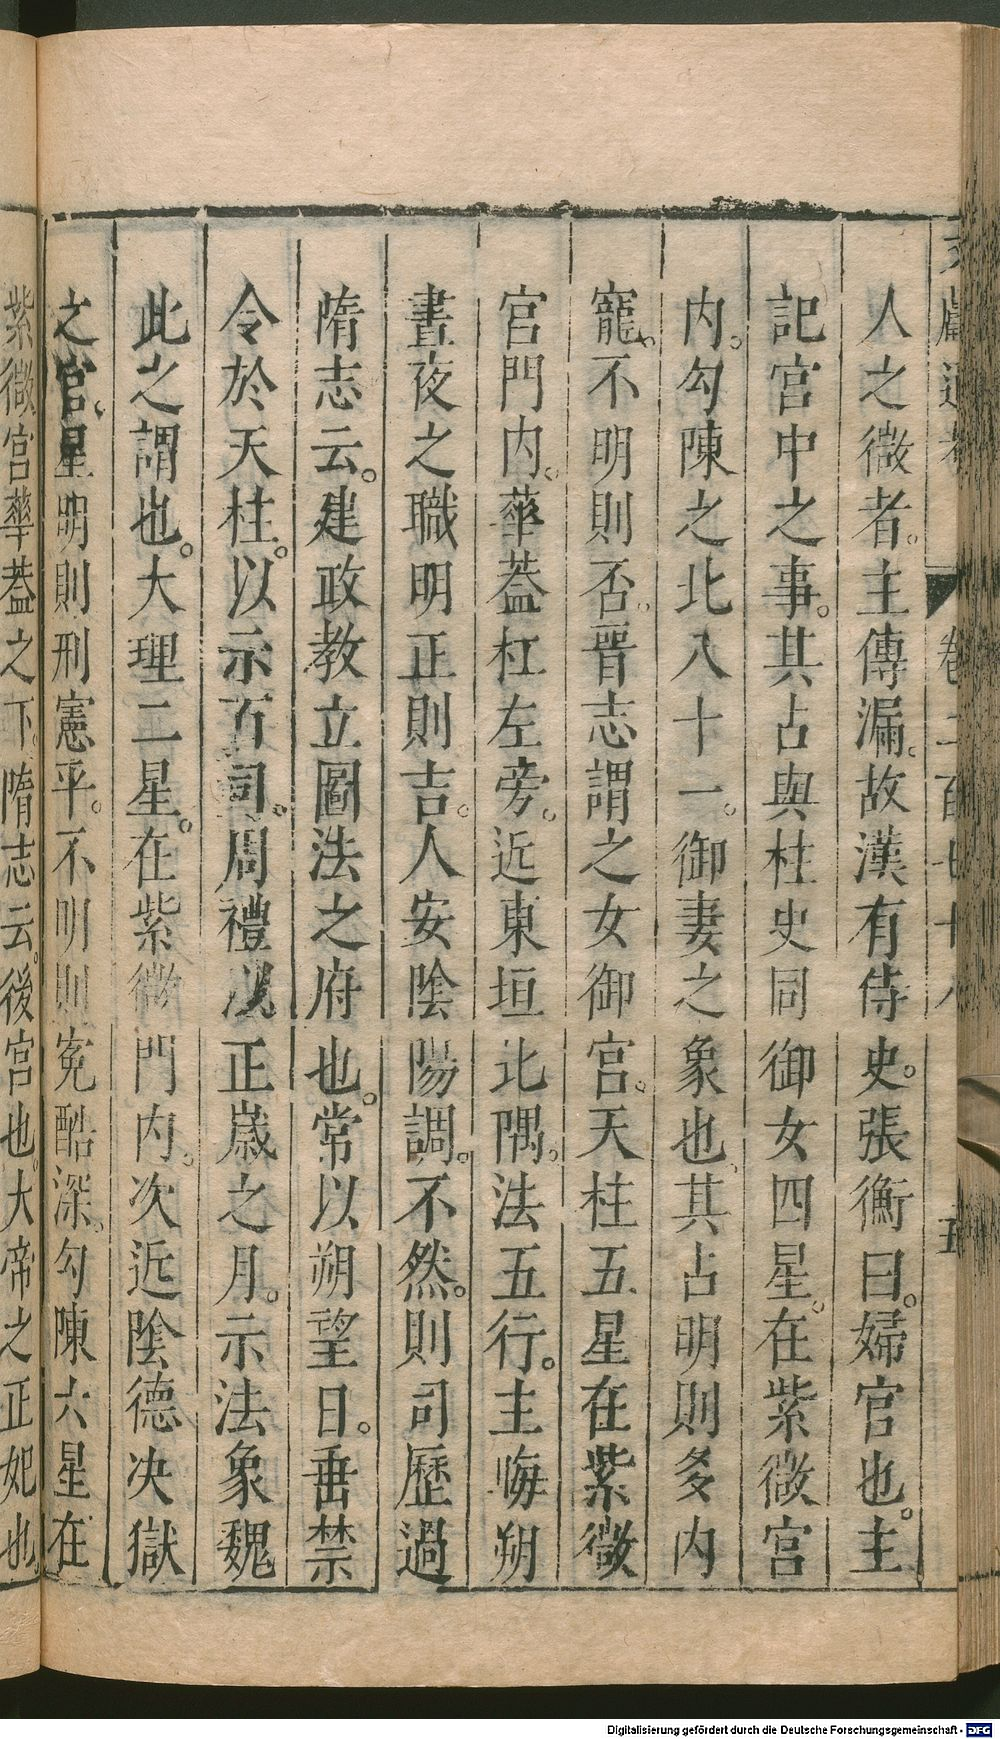 人之微者。主傳漏。故漢有侍史。張衡曰。婦官也。主
記宮中之事。其占與柱史同御女四星。在紫微宮
内。勾陳之北八十一。御妻之象也、其占明則多内
寵、不明則否。晉志謂之女御宮。天柱五星在紫微
宮門内。華葢杠左旁。近東垣北隅。法五行。主晦朔
晝夜之職明正則吉。人安陰陽調。不然。則司歷過
隋志云。建政教立圖法之府也。常以朔望日。垂禁
令於天柱。以示百司。周禮以正歲之月。示法象魏
此之謂也。大理二星。在紫微門内。次近陰德决獄
之官、星明則刑憲平。不明則寃酷深。勾陳六星在
紫微宮華葢之下。隋志云。後宮也。大帝之正妃也。
Digitalisierung gefördert durch die Deutsche Forschungsgemeinschaft - DFG